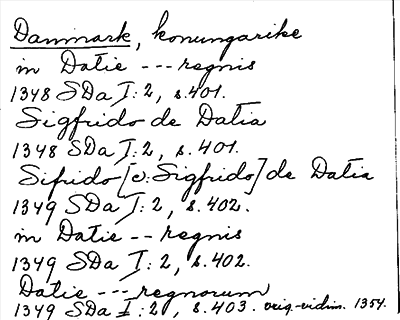 Danmark, konungarike
in Datie --- regnis
1348 SDa I: 2, s. 401.
Sigfrido de Datia
1348 SDa I: 2, s. 401.
Sifrido [c: Sigfrido] de Datia
1349 SDa I: 2, s. 402.
in Datie -- regnis
1349 SDa I: 2, s. 402.
Datie --- regnorum
1349 SDa I: 2, s. 403. orig.-vidim. 1354.